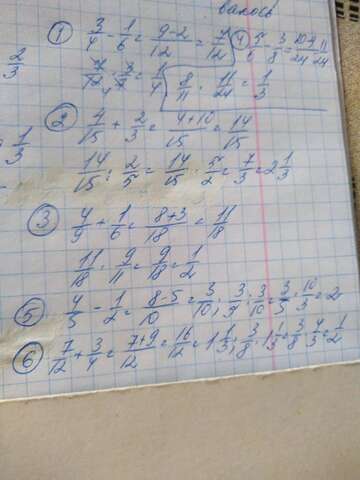 валось
2/3
1/3
① 3/4 - 1/6 = 9-2/12 = 7/12
7/12 · 3/7 = 1/4
8/11 · 11/24 = 1/3
② 4/15 + 2/3 = 4+10/15 = 14/15
14/15 : 2/5 = 14/15 · 5/2 = 7/3 = 2 1/3
③ 4/9 + 1/6 = 8+3/18 = 11/18
11/18 · 9/11 = 9/18 = 1/2
⑤ 4/5 - 1/2 = 8-5/10 = 3/10; 3/5 : 3/10 = 3/5 · 10/3 = 2
⑥ 7/12 + 3/4 = 7+9/12 = 16/12 = 1 1/3; 3/8 · 1 1/3 = 3/8 · 4/3 = 1/2